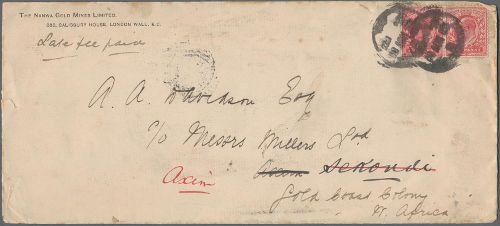 The Nanwa Gold Mines Limited.
380, Salisbury House, London Wall, E.C.
Late fee paid
A. A. Davidson Esq
c/o Messrs Millers Ltd
Axim Axim Sekondi
Gold Coast Colony
W. Africa